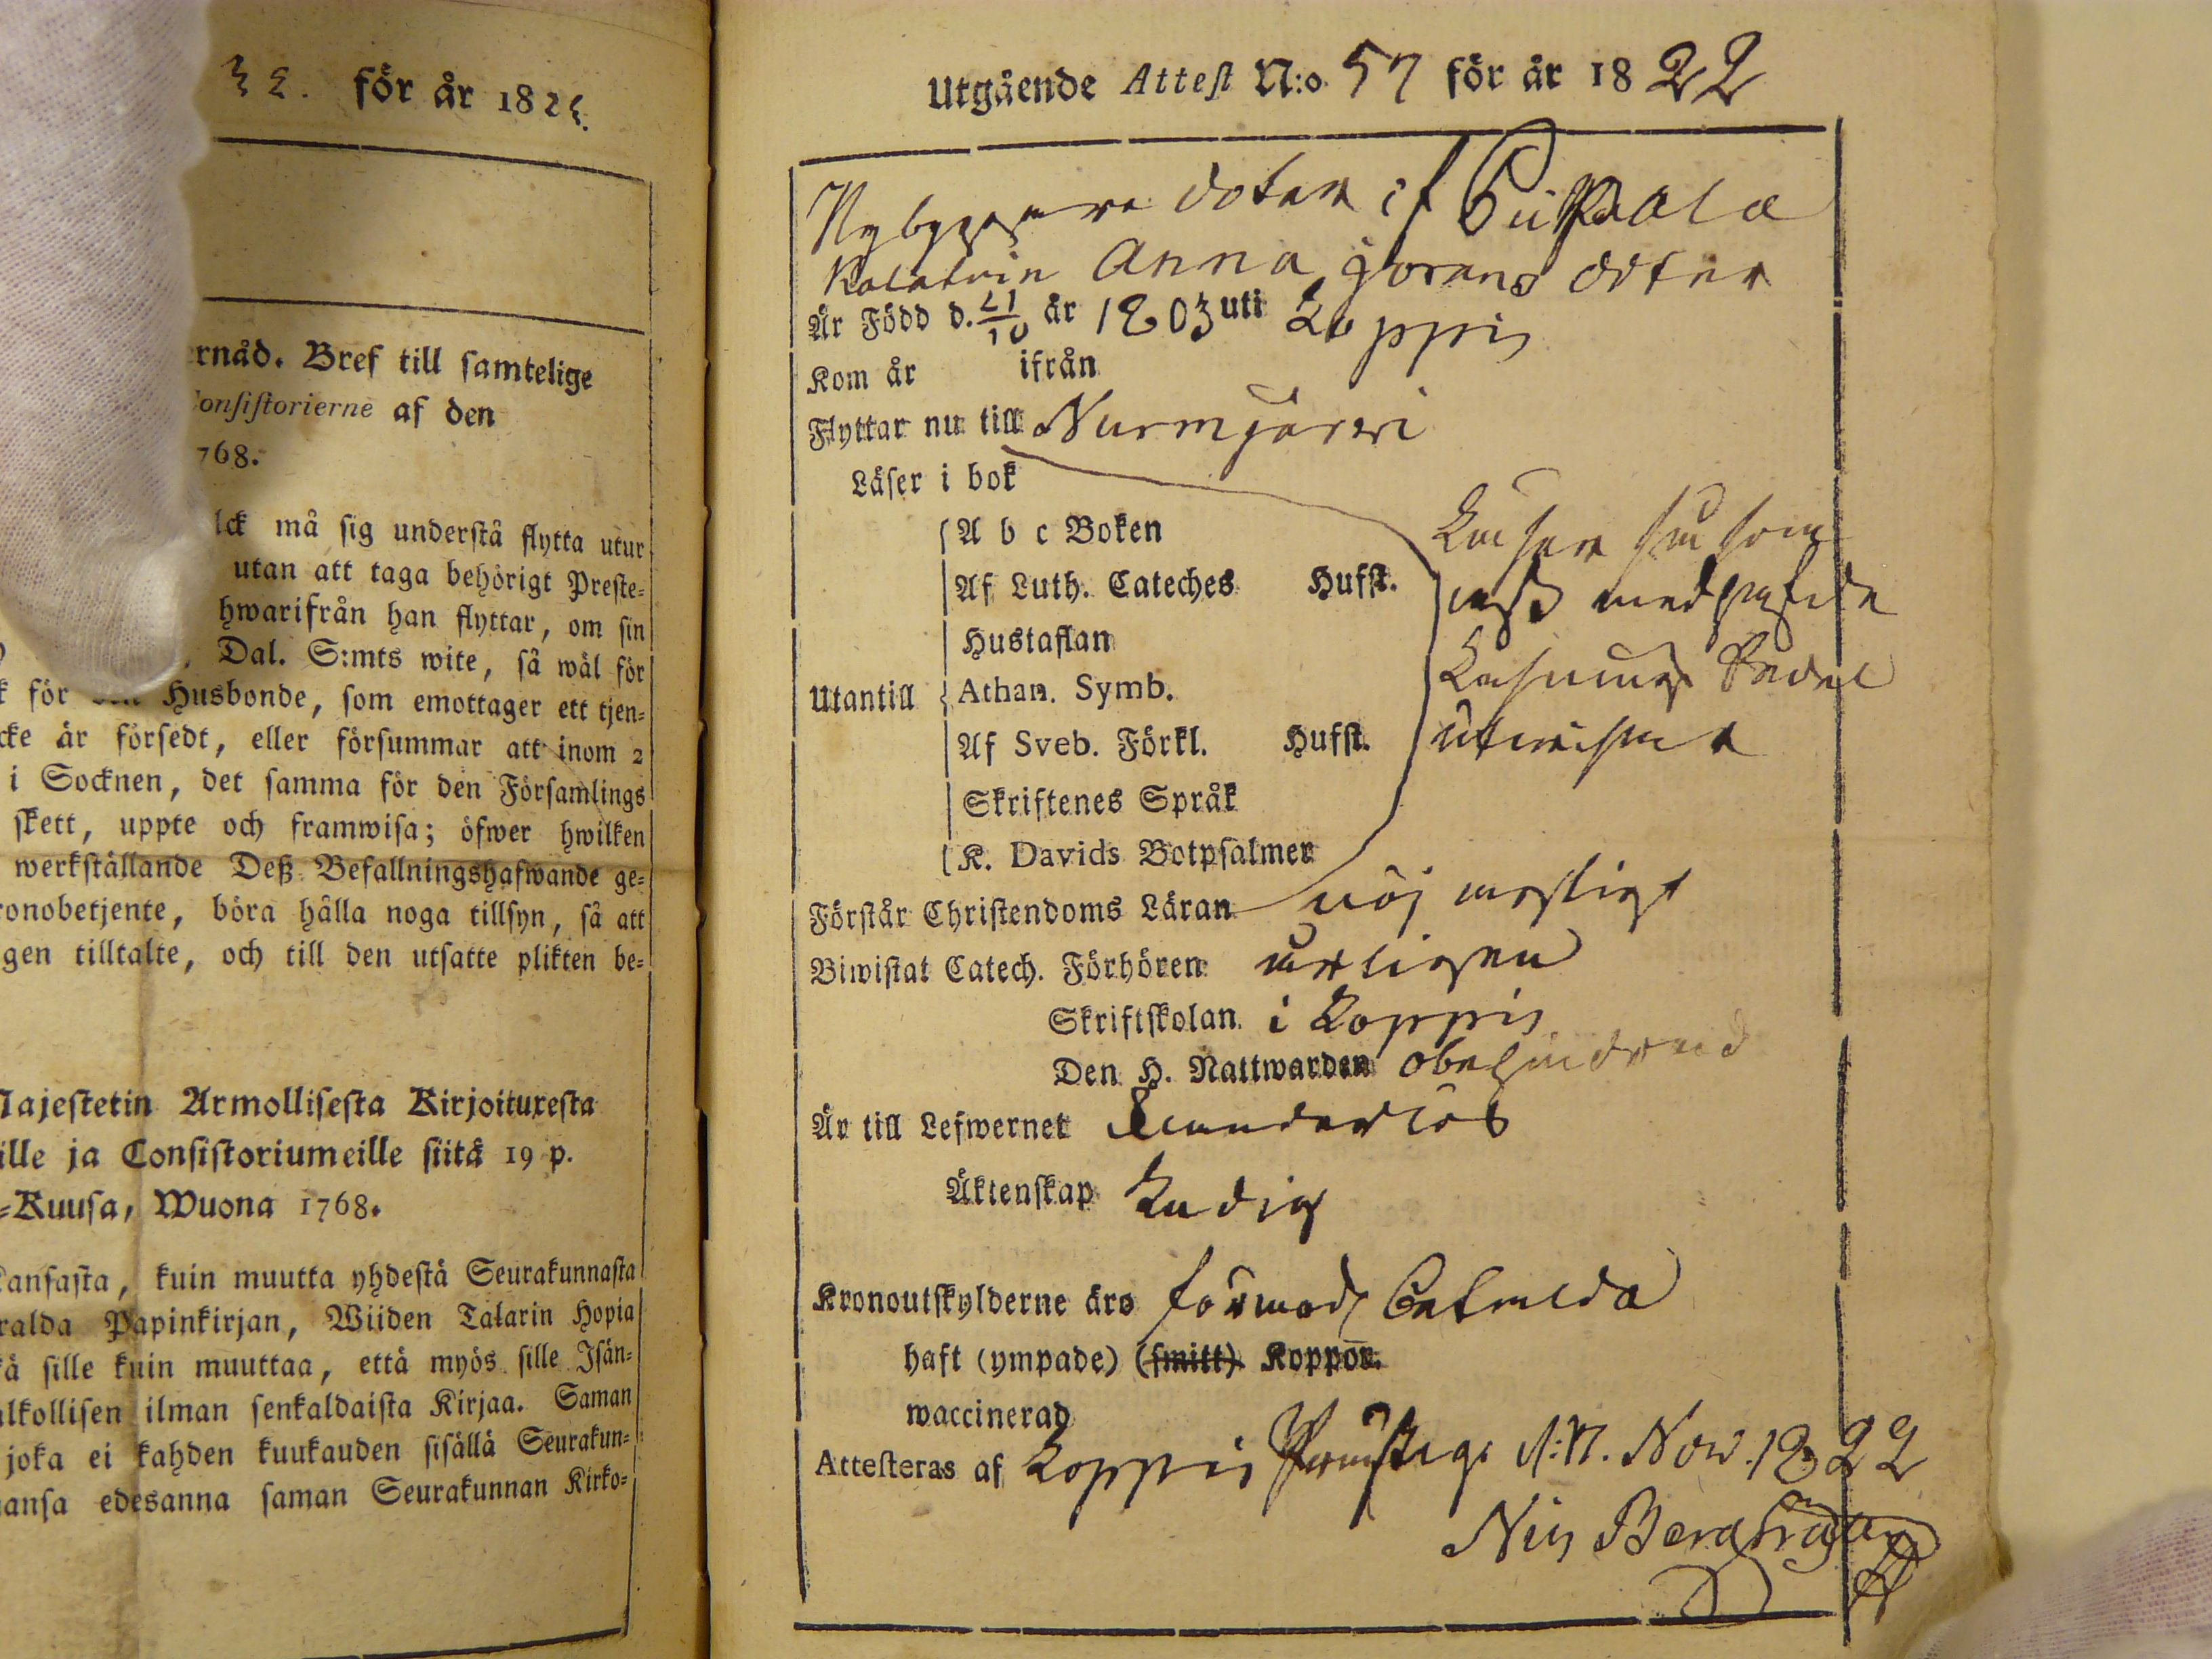 32. för år 182
ernåd. Bref till samtelige
Consistorierne af den
1768.
lck må sig understå flytta utur
utan att taga behörigt Preste-
hwarifrån han flyttar, om sin
Dal. S:mts wite, så wäl för
k för Husbonde, som emottager ett tjen-
cke är försedt, eller försummar att inom 2
i Socknen, det samma för den Församlings
skett, uppte och framwisa; öfwer hwilken
werkställande Deß Befallningshafwande ge-
ronobetjente, böra hålla noga tillsyn, så att
gen tilltalte, och till den utsatte plikten be-
Majestetin Armollisesta Kirjoituxesta
ille ja Consistoriumeille siitä 19 p.
-Kuusa, Wuona 1768.
Kansasta, kuin muutta yhdestä Seurakunnasta
ralda Papinkirjan, Wiiden Talarin Hopia
kä sille kuin muuttaa, että myös sille Isän-
alkollisen ilman senkaldaista Kirjaa. Saman
joka ei kahden kuukauden sisällä Seurakun-
ansa edesanna saman Seurakunnan Kirko-
Utgående Attest N:o 57 för år 1822
Nybyggare doter if
Anna Jörans doter
Är Född d. 21/10 år 1803 uti Loppis
Kom år ifrån
Flyttar nu till Nurmjärwi
Läser i bok
A b c Boken
Läser
Af Luth. Cateches Hufst.
medhafde
Hustaflan
Utantill Athan. Symb.
Läsnings Sedel
Af Sveb. Förkl. Hufst.
utwisar
Skriftenes Språk
K. Davids Botpsalmer
Förstår Christendoms Läran nöjagtligt
Biwistat Catech. Förhören årligen
Skriftskolan i Loppis
Den H. Nattwarden obehindrad
Är till Lefwernet klanderlös
Äktenskap Ledig
Kronoutskylderne äro förmod. betalda
haft (ympade) (smitt) Koppor.
waccinerad
Attesteras af Loppis Prästeg. d. 17. Nov. 1822
Nils Bergström